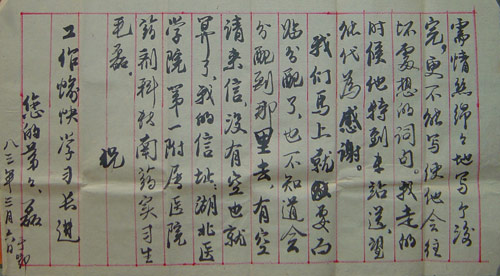 需情丝绵々地写个没
完,更不能写使他会往
坏处想的词句。我走的
时候他特到车站送,望
能代为感谢。
我们马上就要面
临分配了,也不知道会
分配到那里去,有空
请来信,没有空也就
算了,我的信址:湖北医
学院第一附属医院
药剂科转南药实习生
毛磊。
祝
工作愉快学习长进
您的弟々磊
八三年三月六日